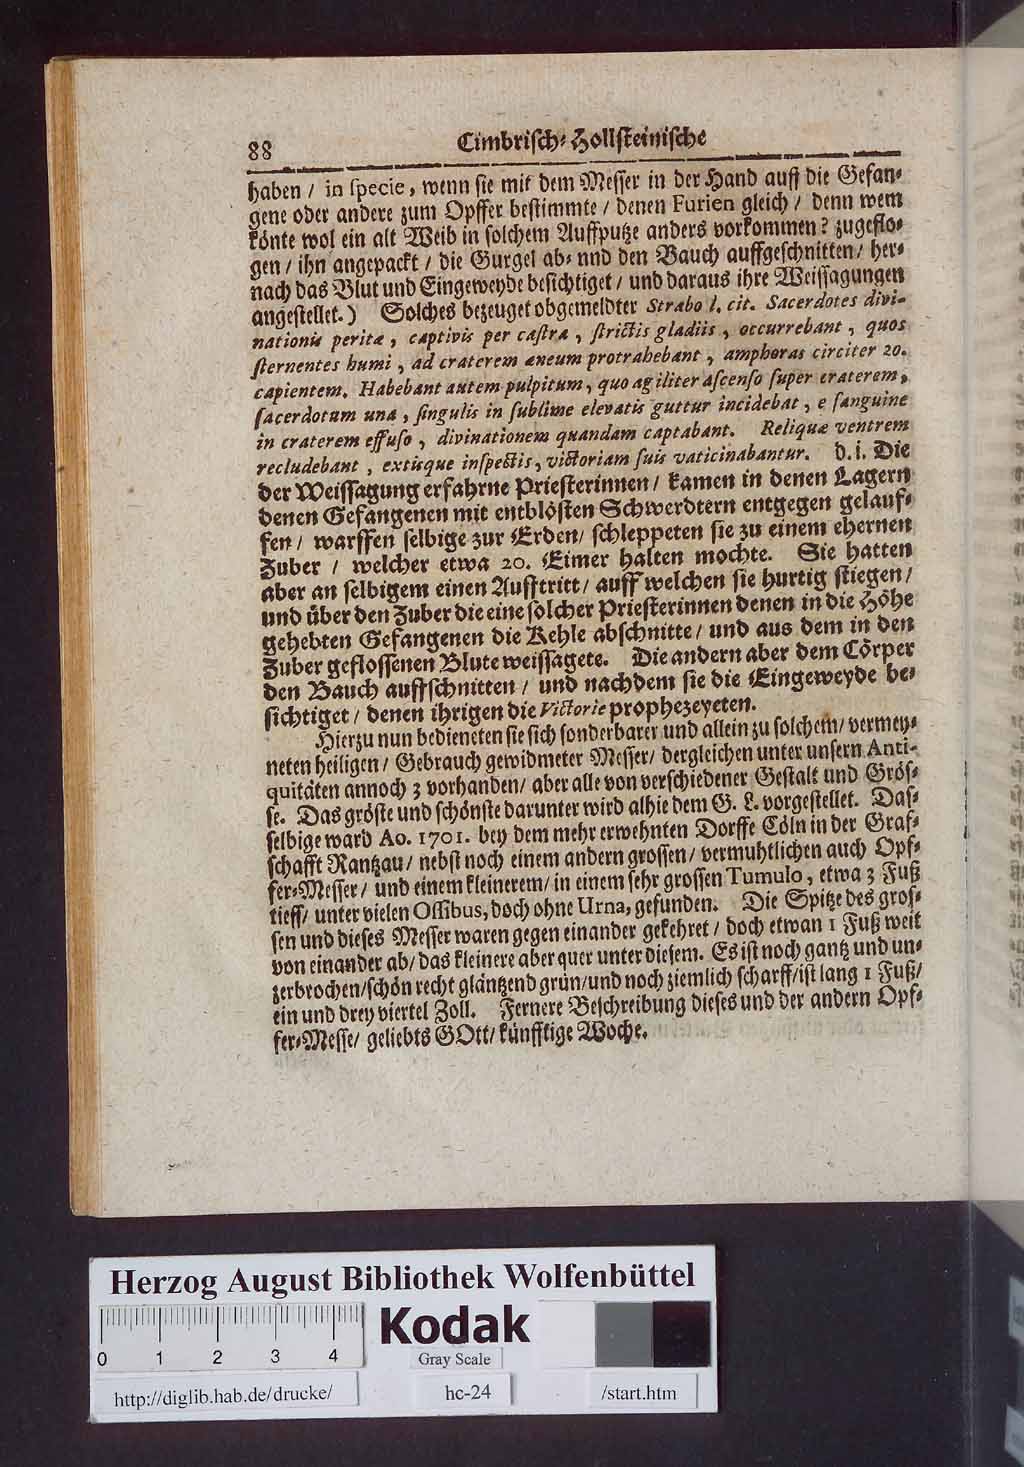 88 Cimbrisch-Hollsteinische
haben / in specie, wenn sie mit dem Messer in der Hand auff die Gefan-
gene oder andere zum Opffer bestimmte / denen Furien gleich / denn wem
könte wol ein alt Weib in solchem Auffputze anders vorkommen? zugeflo-
gen / ihn angepackt / die Gurgel ab- nnd den Bauch auffgeschnitten / her-
nach das Blut und Eingeweyde besichtiget / und daraus ihre Weissagungen
angestellet.) Solches bezeuget obgemeldter Strabo l. cit. Sacerdotes divi-
nationis peritæ, captivis per castra, strictis gladiis, occurrebant, quos
sternentes humi, ad craterem æneum protrahebant, amphoras circiter 20.
capientem. Habebant autem pulpitum, quo agiliter ascenso super craterem,
sacerdotum una, singulis in sublime elevatis guttur incidebat, e sanguine
in craterem effuso, divinationem quandam captabant. Reliquæ ventrem
recludebant, extisque inspectis, victoriam suis vaticinabantur. d. i. Die
der Weissagung erfahrne Priesterinnen / kamen in denen Lagern
denen Gefangenen mit entblösten Schwerdtern entgegen gelauf-
fen / warffen selbige zur Erden / schleppeten sie zu einem ehernen
Zuber / welcher etwa 20. Eimer halten mochte. Sie hatten
aber an selbigem einen Aufftritt / auff welchen sie hurtig stiegen /
und über den Zuber die eine solcher Priesterinnen denen in die Höhe
gehebten Gefangenen die Kehle abschnitte / und aus dem in den
Zuber geflossenen Blute weissagete. Die andern aber dem Cörper
den Bauch auffschnitten / und nachdem sie die Eingeweyde be-
sichtiget / denen ihrigen die Victorie prophezeyeten.
Hierzu nun bedieneten sie sich sonderbarer und allein zu solchem / vermey-
neten heiligen / Gebrauch gewidmeter Messer / dergleichen unter unsern Anti-
quitäten annoch 3 vorhanden / aber alle von verschiedener Gestalt und Grös-
se. Das gröste und schönste darunter wird alhie dem G. L. vorgestellet. Das-
selbige ward Ao. 1701. bey dem mehr erwehnten Dorffe Cöln in der Graf-
schafft Rantzau / nebst noch einem andern grossen / vermuhtlichen auch Opf-
fer-Messer / und einem kleinerem / in einem sehr grossen Tumulo, etwa 3 Fuß
tieff / unter vielen Ossibus, doch ohne Urna, gefunden. Die Spitze des gros-
sen und dieses Messer waren gegen einander gekehret / doch etwan 1 Fuß weit
von einander ab / das kleinere aber quer unter diesem. Es ist noch gantz und un-
zerbrochen / schön recht gläntzend grün / und noch ziemlich scharff / ist lang 1 Fuß /
ein und drey viertel Zoll. Fernere Beschreibung dieses und der andern Opf-
fer-Messe / geliebts GOtt / künfftige Woche.
Herzog August Bibliothek Wolfenbüttel
0 1 2 3 4
Kodak
Gray Scale
http://diglib.hab.de/drucke/ hc-24 /start.htm